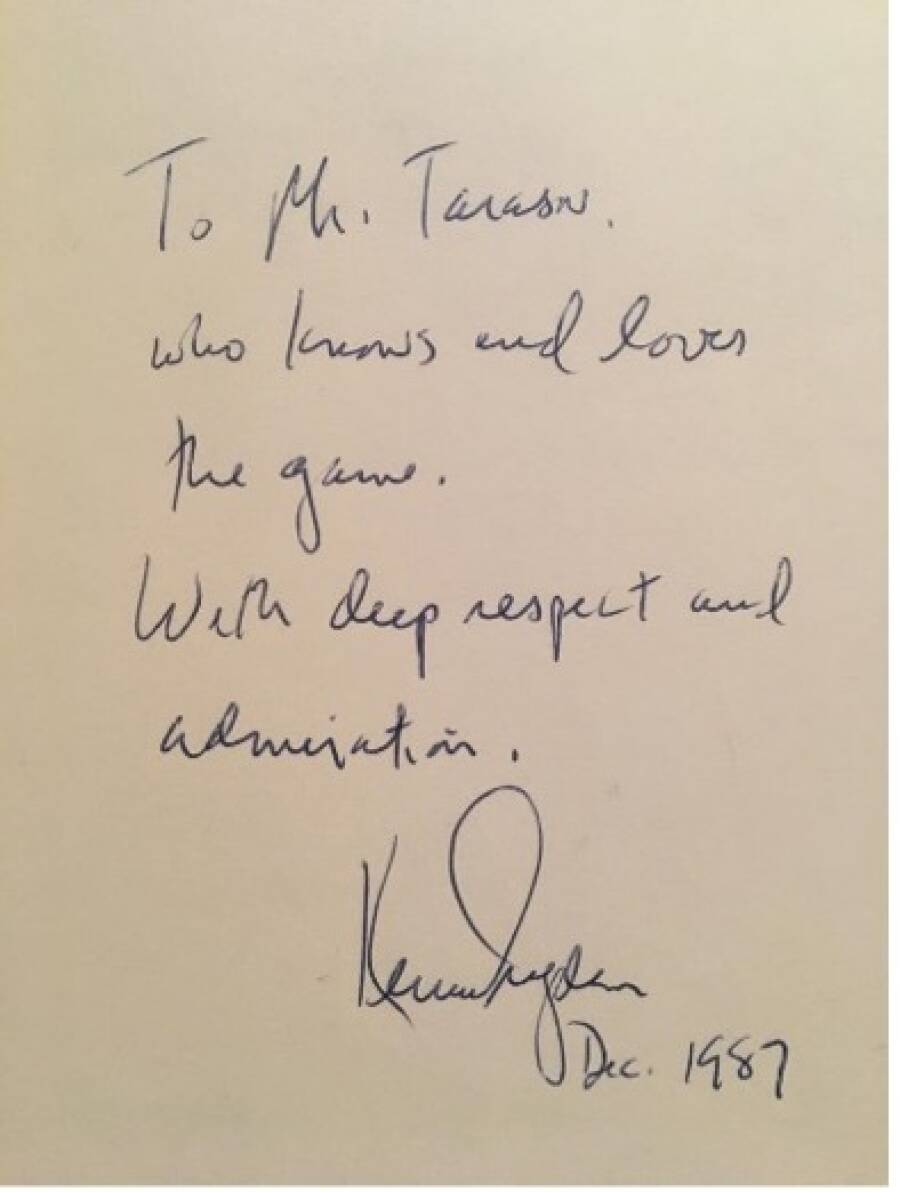 To Mr. Tarasov.
who knows and loves
the game.
With deep respect and
admiration.
Ken Dryden
Dec. 1987